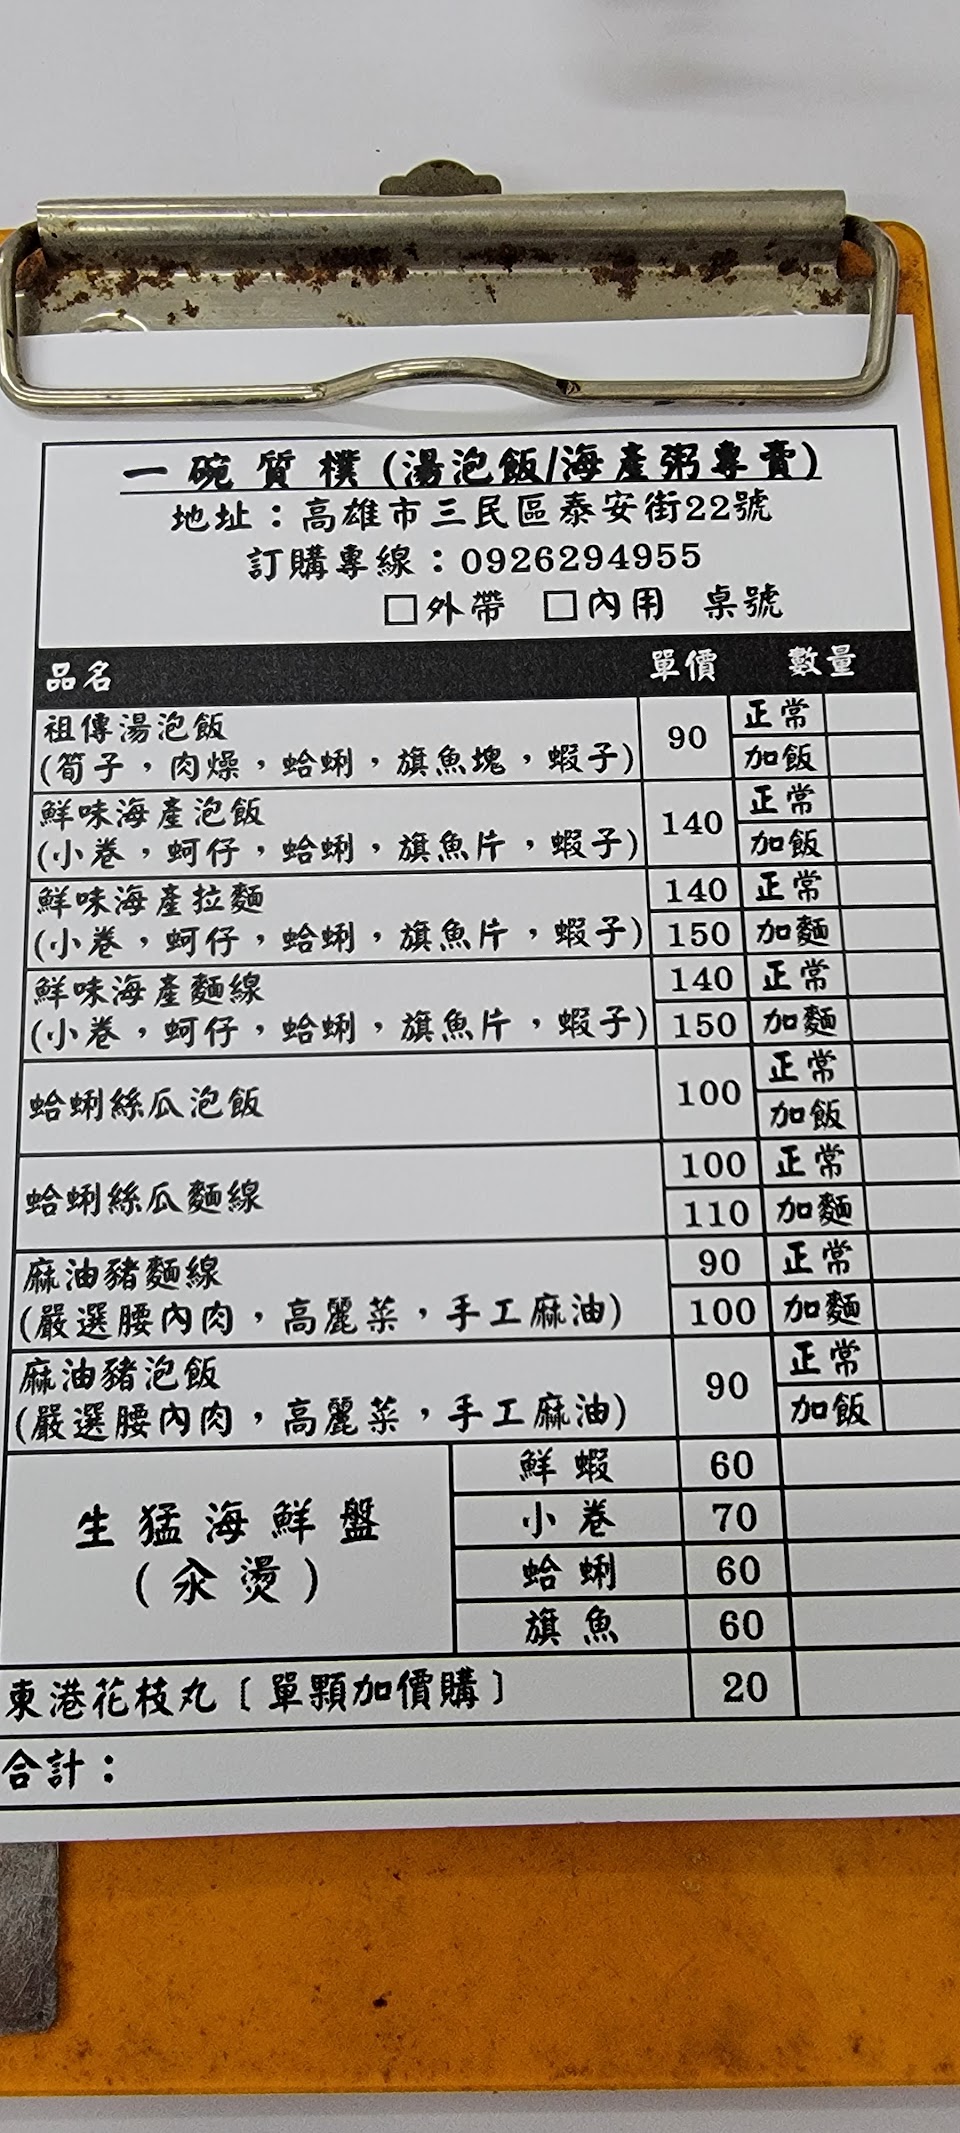 一碗質樸(湯泡飯/海產粥專賣)
地址：高雄市三民區泰安街22號
訂購專線：0926294955
□外帶 □內用 桌號
品名 單價 數量
祖傳湯泡飯
(筍子，肉燥，蛤蜊，旗魚塊，蝦子) 90 正常
加飯
鮮味海產泡飯
(小卷，蚵仔，蛤蜊，旗魚片，蝦子) 140 正常
加飯
鮮味海產拉麵 140 正常
(小卷，蚵仔，蛤蜊，旗魚片，蝦子) 150 加麵
鮮味海產麵線 140 正常
(小卷，蚵仔，蛤蜊，旗魚片，蝦子) 150 加麵
蛤蜊絲瓜泡飯 100 正常
加飯
蛤蜊絲瓜麵線 100 正常
110 加麵
麻油豬麵線 90 正常
(嚴選腰內肉，高麗菜，手工麻油) 100 加麵
麻油豬泡飯 90 正常
(嚴選腰內肉，高麗菜，手工麻油) 加飯
生猛海鮮盤
(汆燙)
鮮蝦 60
小卷 70
蛤蜊 60
旗魚 60
東港花枝丸〔單顆加價購〕 20
合計：